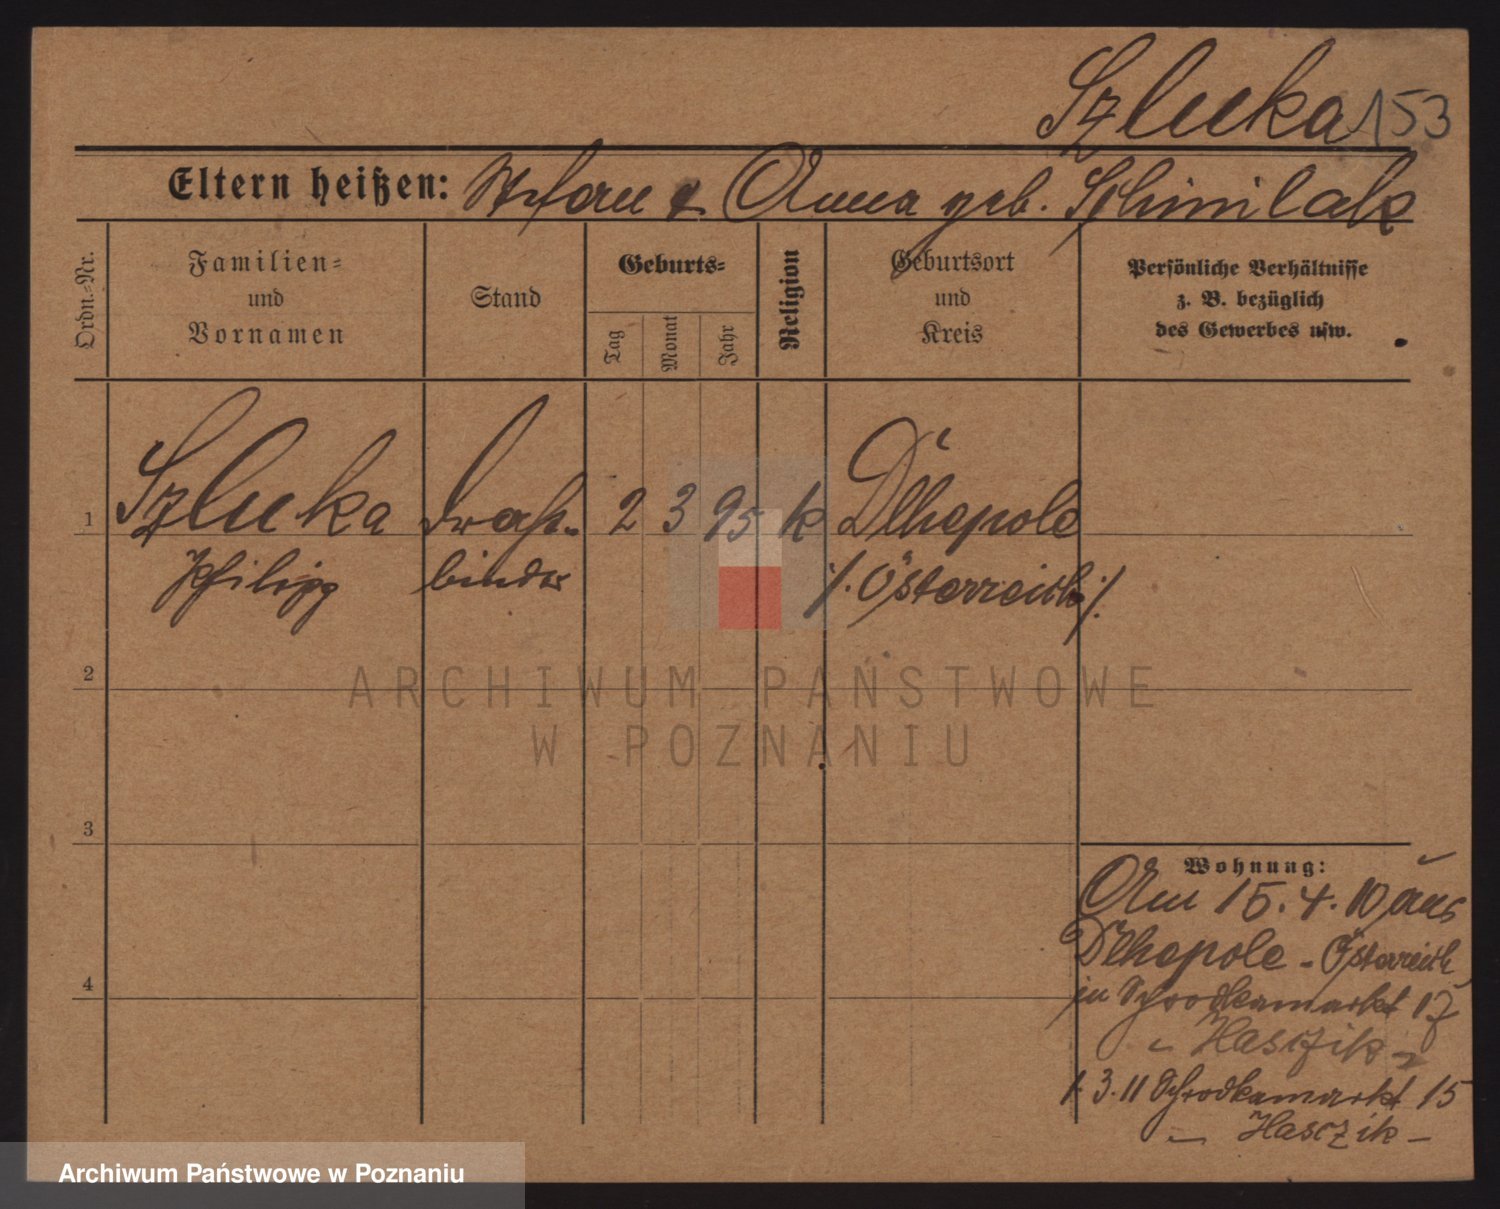 Szluka 153
Eltern heißen: Stefan & Anna geb. Schimilak
Ordn.-Nr.
Familien-
und
Vornamen
Stand
Geburts-
Tag
Monat
Jahr
Religion
Geburtsort
und
Kreis
Persönliche Verhältnisse
z. B. bezüglich
des Gewerbes usw.
1
Szluka Draht- 2 3 95 k Dlhepole
Philipp binder /. Österreich ./
2
3
4
Wohnung:
Am 15.4.10 aus
Dlhepole - Österreich
in Schrodkamarkt 17
- Hasczik -
1.3.11 Schrodkamarkt 15
- Hasczik -
ARCHIWUM PAŃSTWOWE
W POZNANIU
Archiwum Państwowe w Poznaniu